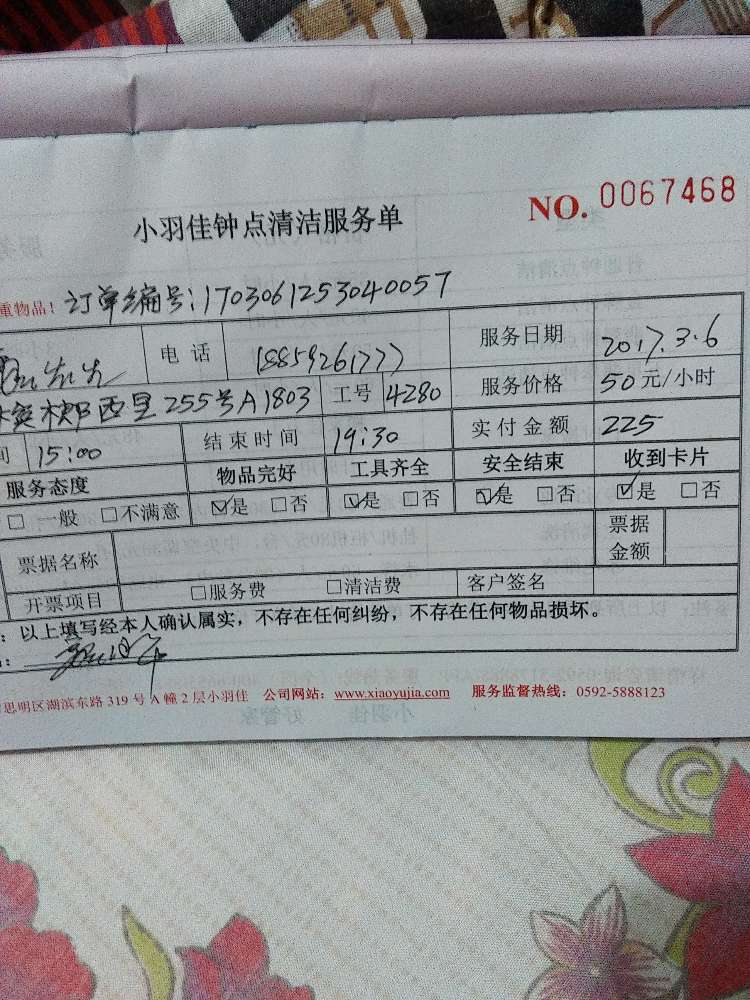 NO. 0067468
小羽佳钟点清洁服务单
重物品! 订单编号:1703061253040057
电话 18859261777 服务日期 2017.3.6
西里255号A1803 工号 4280 服务价格 50元/小时
间 15:00 结束时间 19:30 实付金额 225
服务态度 物品完好 工具齐全 安全结束 收到卡片
□ 一般 □不满意 ☑是 □否 ☑是 □否 ☑是 □否 ☑是 □否
票据名称 票据金额
开票项目 □服务费 □清洁费 客户签名
:以上填写经本人确认属实,不存在任何纠纷,不存在任何物品损坏。
思明区湖滨东路 319 号 A 幢 2 层小羽佳 公司网站:www.xiaoyujia.com 服务监督热线:0592-5888123